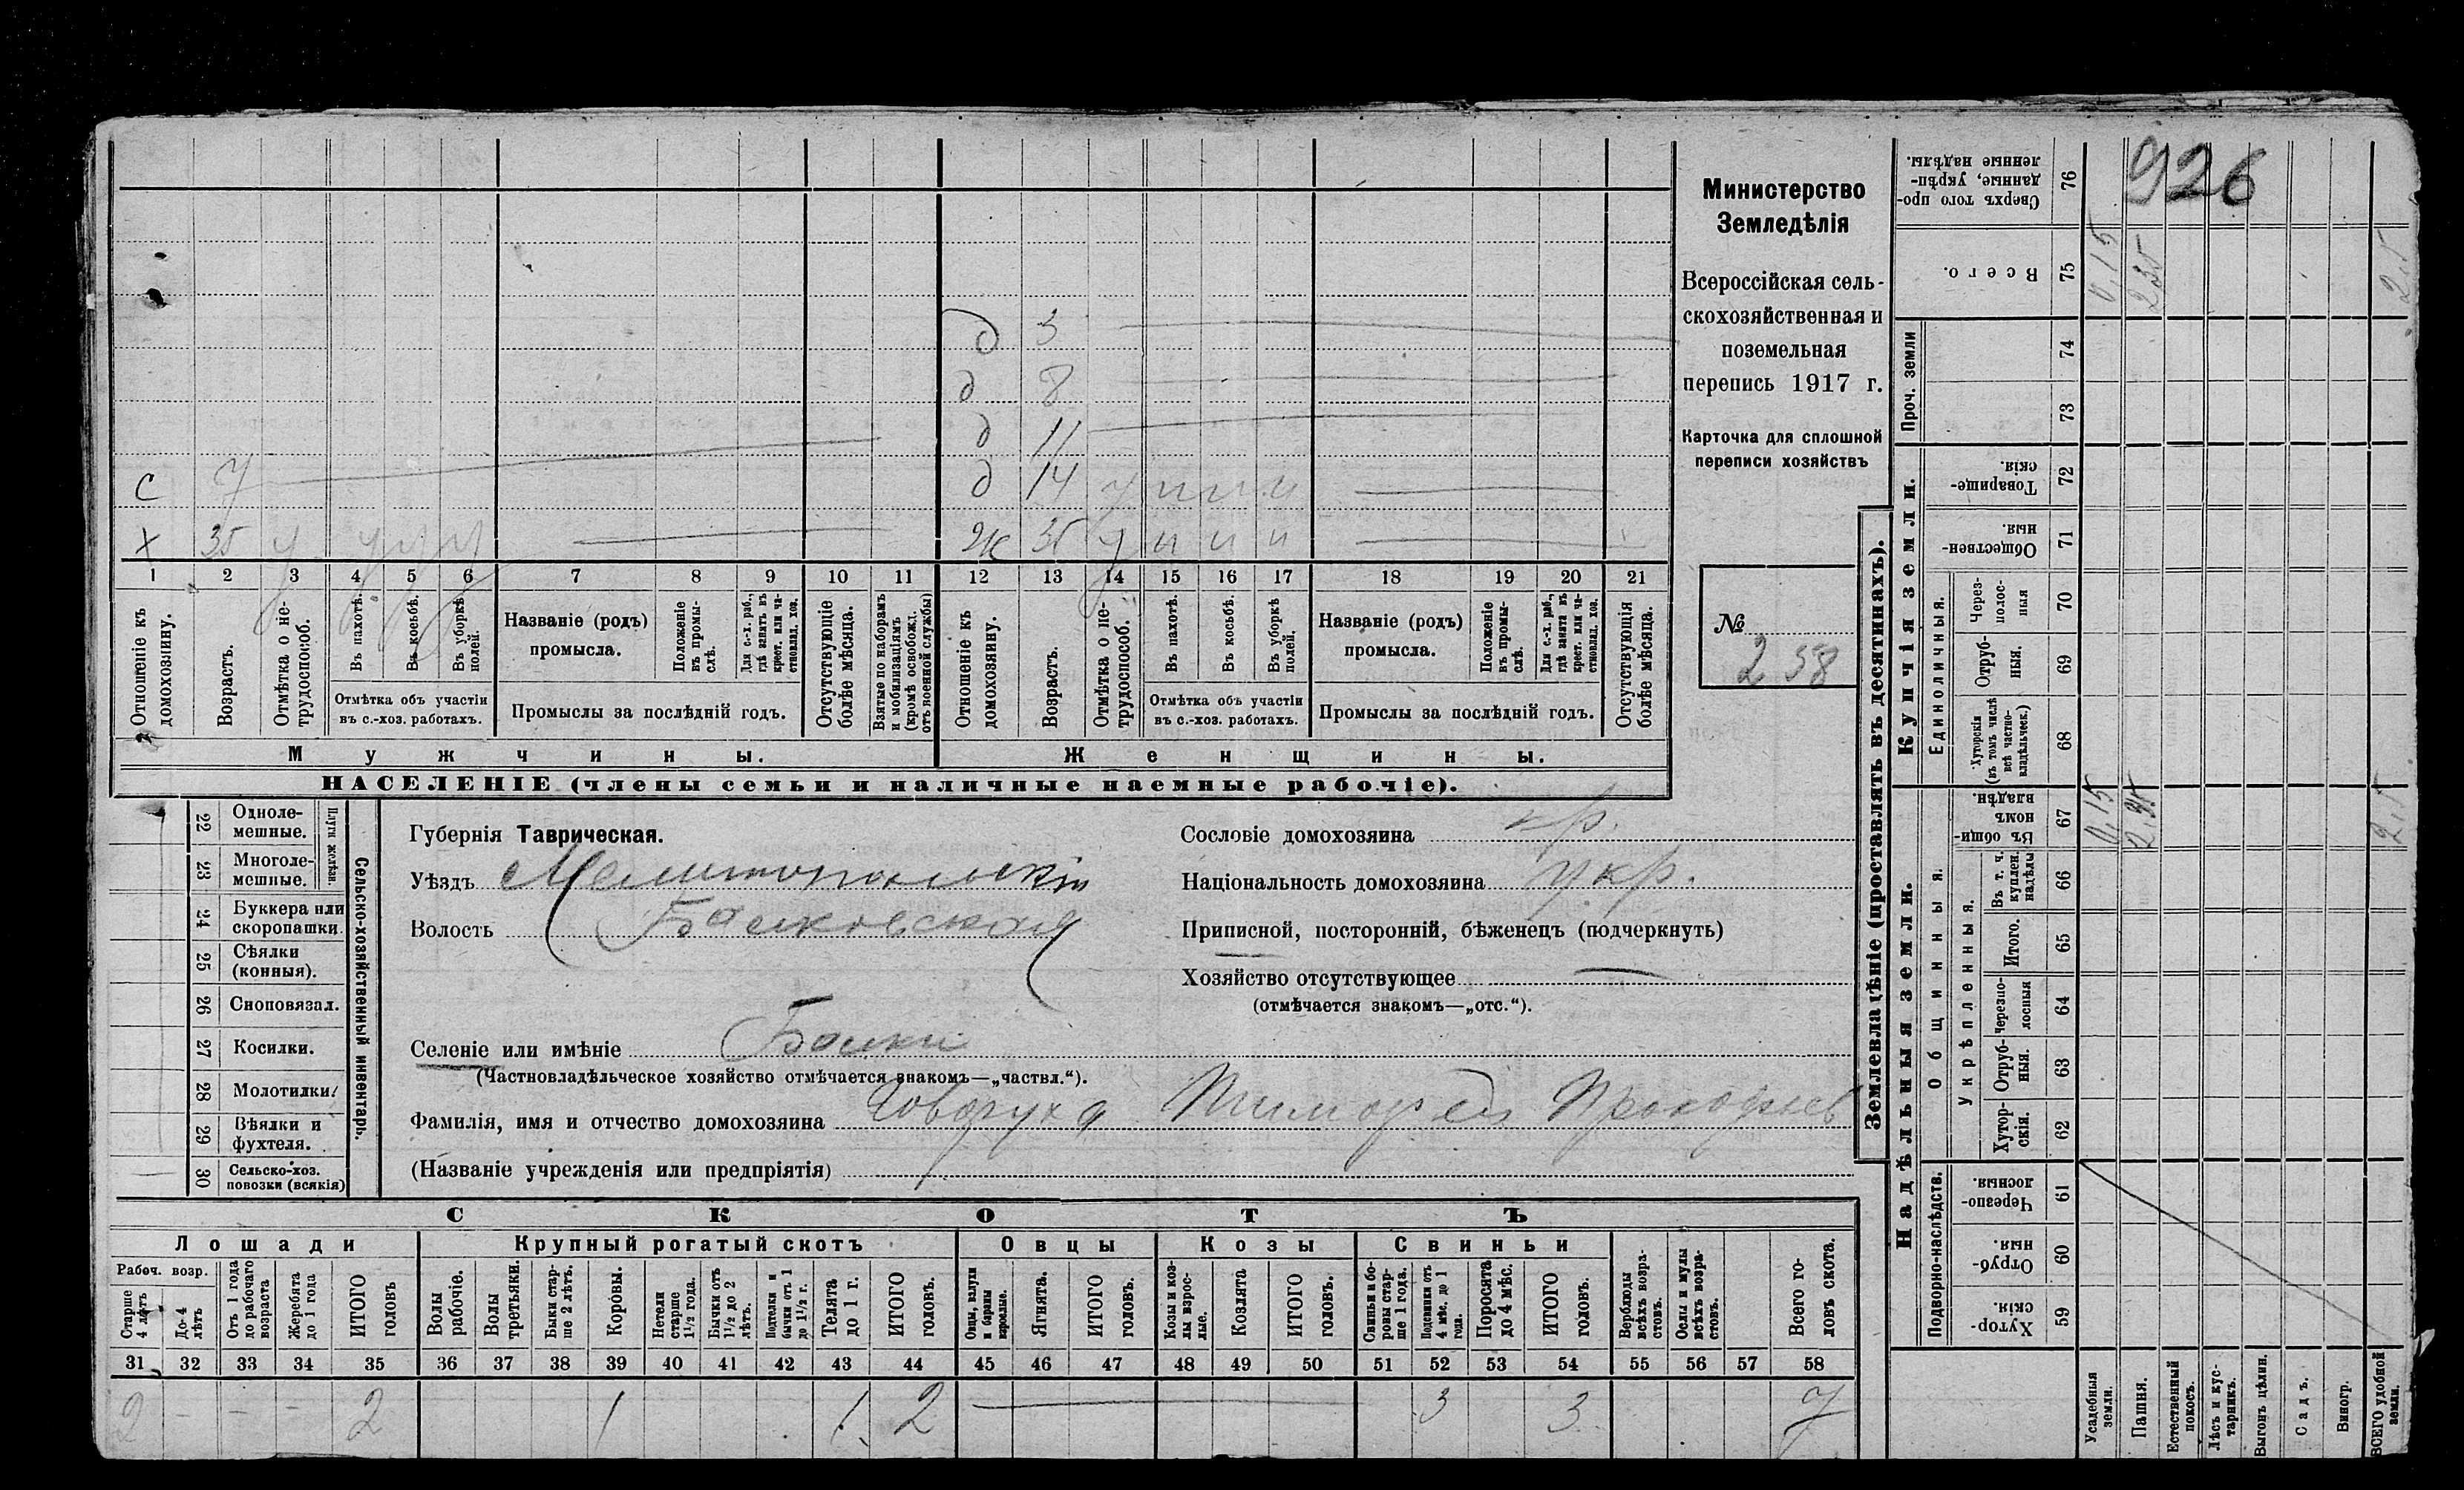 926
Министерство
Земледѣлія
Всероссійская сель-
скохозяйственная и
поземельная
перепись 1917 г.
Карточка для сплошной
переписи хозяйствъ
№
258
д 3
д 8
д 11
с 7 д 14 у и и и
х 35 у у у у ж 35 у и и и
1 2 3 4 5 6 7 8 9 10 11 12 13 14 15 16 17 18 19 20 21
Отношеніе къ домохозяину.
Возрастъ.
Отмѣтка о не-трудоспособ.
Въ пахотѣ.
Въ косьбѣ.
Въ уборкѣ полей.
Отмѣтка объ участіи
въ с.-хоз. работахъ.
Названіе (родъ)
промысла.
Положеніе въ промы-слѣ.
Для с.-х. раб., гдѣ занятъ въ крест. или ча-стновлад. хоз.
Промыслы за послѣдній годъ.
Отсутствующіе болѣе мѣсяца.
Взятые по наборамъ и мобилизаціямъ (кромѣ освобожд. отъ военной службы)
Отношеніе къ домохозяину.
Возрастъ.
Отмѣтка о не-трудоспособ.
Въ пахотѣ.
Въ косьбѣ.
Въ уборкѣ полей.
Отмѣтка объ участіи
въ с.-хоз. работахъ.
Названіе (родъ)
промысла.
Положеніе въ промы-слѣ.
Для с.-х. раб., гдѣ занята въ крест. или ча-стновлад. хоз.
Промыслы за послѣдній годъ.
Отсутствующія болѣе мѣсяца.
Мужчины.
Женщины.
НАСЕЛЕНІЕ (члены семьи и наличные наемные рабочіе).
22 Одноле-мешные.
23 Многоле-мешные.
Плуги желѣзн.
24 Буккера или скоропашки.
25 Сѣялки (конныя).
26 Сноповязал.
27 Косилки.
28 Молотилки
29 Вѣялки и фухтеля.
30 Сельско-хоз. повозки (всякія)
Сельско-хозяйственный инвентарь.
Губернія Таврическая.
Уѣздъ Мелитопольскій
Волость Балковская
Селеніе или имѣніе Балки
(Частновладѣльческое хозяйство отмѣчается знакомъ—„частвл.“).
Фамилія, имя и отчество домохозяина Говоруха Тимофей Прокофьев
(Названіе учрежденія или предпріятія)
Сословіе домохозяина кр.
Національность домохозяина укр.
Приписной, посторонній, бѣженецъ (подчеркнуть)
Хозяйство отсутствующее —
(отмѣчается знакомъ—„отс.“).
СКОТЪ
Лошади
Крупный рогатый скотъ
Овцы
Козы
Свиньи
Рабоч. возр.
Старше 4 лѣтъ
До-4 лѣтъ
Отъ 1 года до рабочаго возраста
Жеребята до 1 года
ИТОГО головъ
Волы рабочіе.
Волы третьяки.
Быки стар-ше 2 лѣтъ.
Коровы.
Нетели старше 1½ года.
Бычки отъ 1½ до 2 лѣтъ.
Подтелки и бычки отъ 1 до 1½ г.
Телята до 1 г.
ИТОГО головъ.
Овцы, валухи и бараны взрослые.
Ягнята.
ИТОГО головъ.
Козы и коз-лы взрос-лые.
Козлята
ИТОГО головъ.
Свиньи и бо-ровы стар-ше 1 года.
Подсвинки отъ 4 мѣс. до 1 года.
Поросята до 4 мѣс.
ИТОГО головъ.
Верблюды всѣхъ возра-стовъ.
Ослы и мулы всѣхъ возра-стовъ.
Всего го-ловъ скота.
31 32 33 34 35 36 37 38 39 40 41 42 43 44 45 46 47 48 49 50 51 52 53 54 55 56 57 58
2 — — — 2 1 1 2 3 3 7
Землевладѣніе (проставлять въ десятинахъ).
Купчія земли.
Надѣльныя земли.
76 Сверхъ того про-данные, укрѣп-ленные надѣлы.
75 Всего. 0,15 2.35 2,5
Проч. земли
74
73
72 Товарище-скія.
71 Обществен-ныя.
Единоличныя.
70 Через-полос-ныя
69 Отруб-ныя.
68 Хуторскія (въ томъ числѣ всѣ частно-владѣльческ.)
67 Въ общин-номъ владѣн. 0,15 2.35 2,5
Общинныя.
Укрѣпленныя.
66 Въ т. ч. куплен. надѣлы
65 Итого.
64 Черезпо-лосныя
63 Отруб-ныя.
62 Хутор-скія.
Подворно-наслѣдств.
61 Черезпо-лосныя
60 Отруб-ныя.
59 Хутор-скія.
Усадебныя земли.
Пашня.
Естественный покосъ.
Лѣсъ и кус-тарникъ.
Выгонъ цѣлин.
Садъ.
Виногр.
ВСЕГО удобной земли.